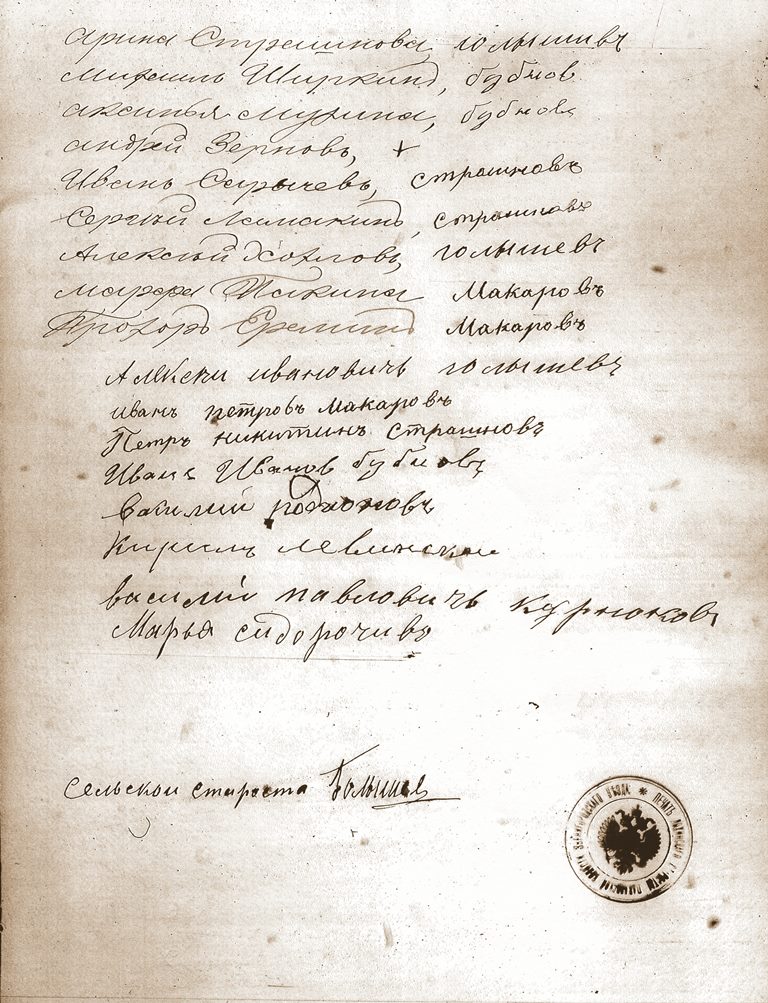 арина Страшнова, голышевъ
михаилъ Ширкинъ, бубнов
аксинья мурина, бубновъ
андрей Зерновъ, +
Иванъ Сарычевъ, страшновъ
Сергѣй Ламакинъ, страшновъ
Алексѣй Хохловъ, голышевъ
марфа Пакина Макаровъ
Прохоръ Ереминъ Макаровъ
Алѣкси ивановичъ голышевъ
иванъ петровъ Макаровъ
Петръ никитинъ страшновъ
Иванъ Иванов бубновъ
василий родионовъ
Кирилъ левинской
василий павловичъ курноковъ
Марья сидорочива
Сельской староста Голышев
ПЕЧАТЬ